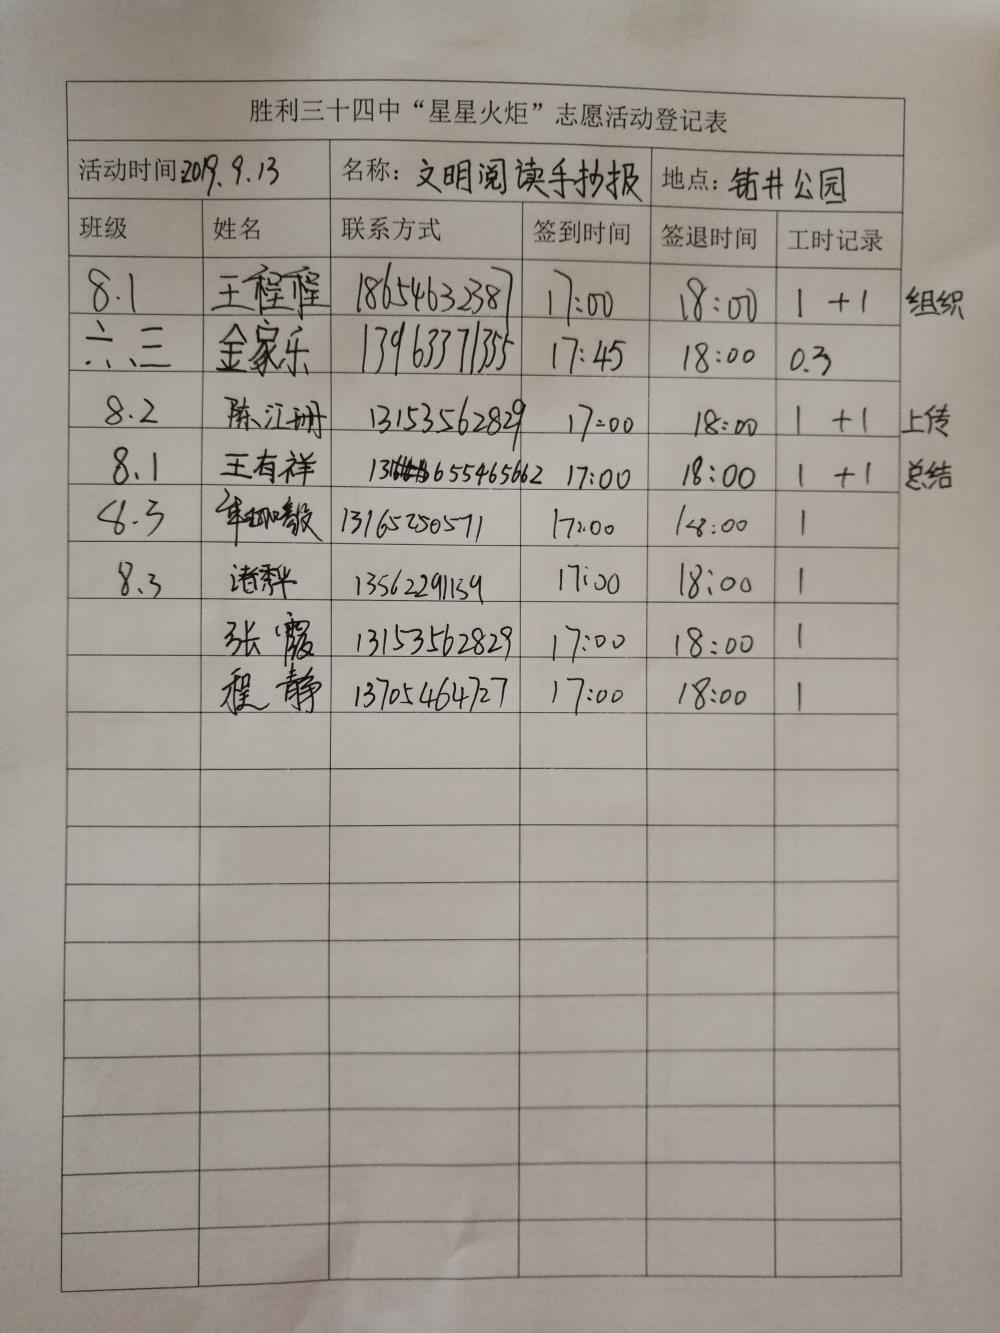 胜利三十四中“星星火炬”志愿活动登记表
活动时间:2019.9.13 名称：文明阅读手抄报 地点：钻井公园
班级 姓名 联系方式 签到时间 签退时间 工时记录
8.1 王程程 18654632387 17:00 18:00 1 +1 组织
六、三 金家乐 13963371355 17:45 18:00 0.3
8.2 陈江珊 13153562829 17:00 18:00 1 +1 上传
8.1 王有祥 655465662 17:00 18:00 1 +1 总结
8.3 13165250571 17:00 18:00 1
8.3 13562291159 17:00 18:00 1
张霞 13153562829 17:00 18:00 1
程静 13705464727 17:00 18:00 1